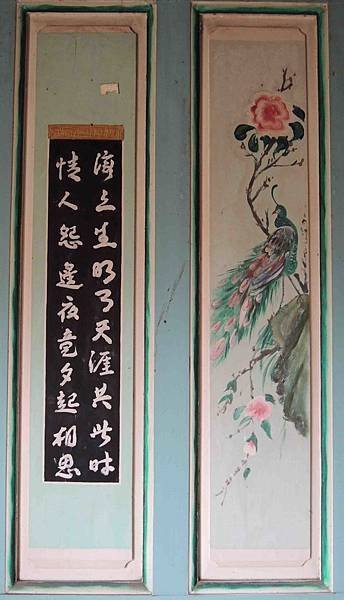 海上生明月天涯共此時
情人怨遙夜竟夕起相思